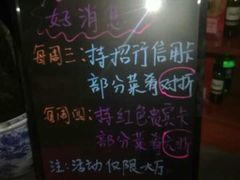 好消息
每周三：持招行信用卡
部分菜肴对折
每周四：持红色卡
部分菜肴折
注：活动仅限大厅